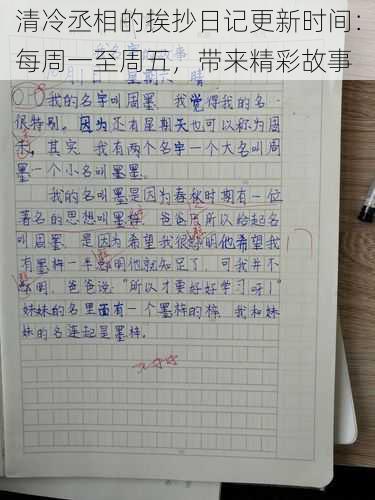 清冷丞相的挨抄日记更新时间：
每周一至周五，带来精彩故事
月1日 星期六 晴
我的名字叫周墨，我觉得我的名
很特别。因为还有星期天也可以称为周
末。其实，我有两个名字一个大名叫周
墨一个小名叫墨墨。
我的名叫墨是因为春秋时期有一位
著名的思想叫墨梓，爸爸所以给起名
叫周墨，是因为希望我很聪明他希望我
有墨梓一半聪明他就知足了，可我并不
聪明，爸爸说："所以才更好好学习呀！"
妹妹的名里面有一个墨梓的梓，我和妹
妹的名连起是墨梓。